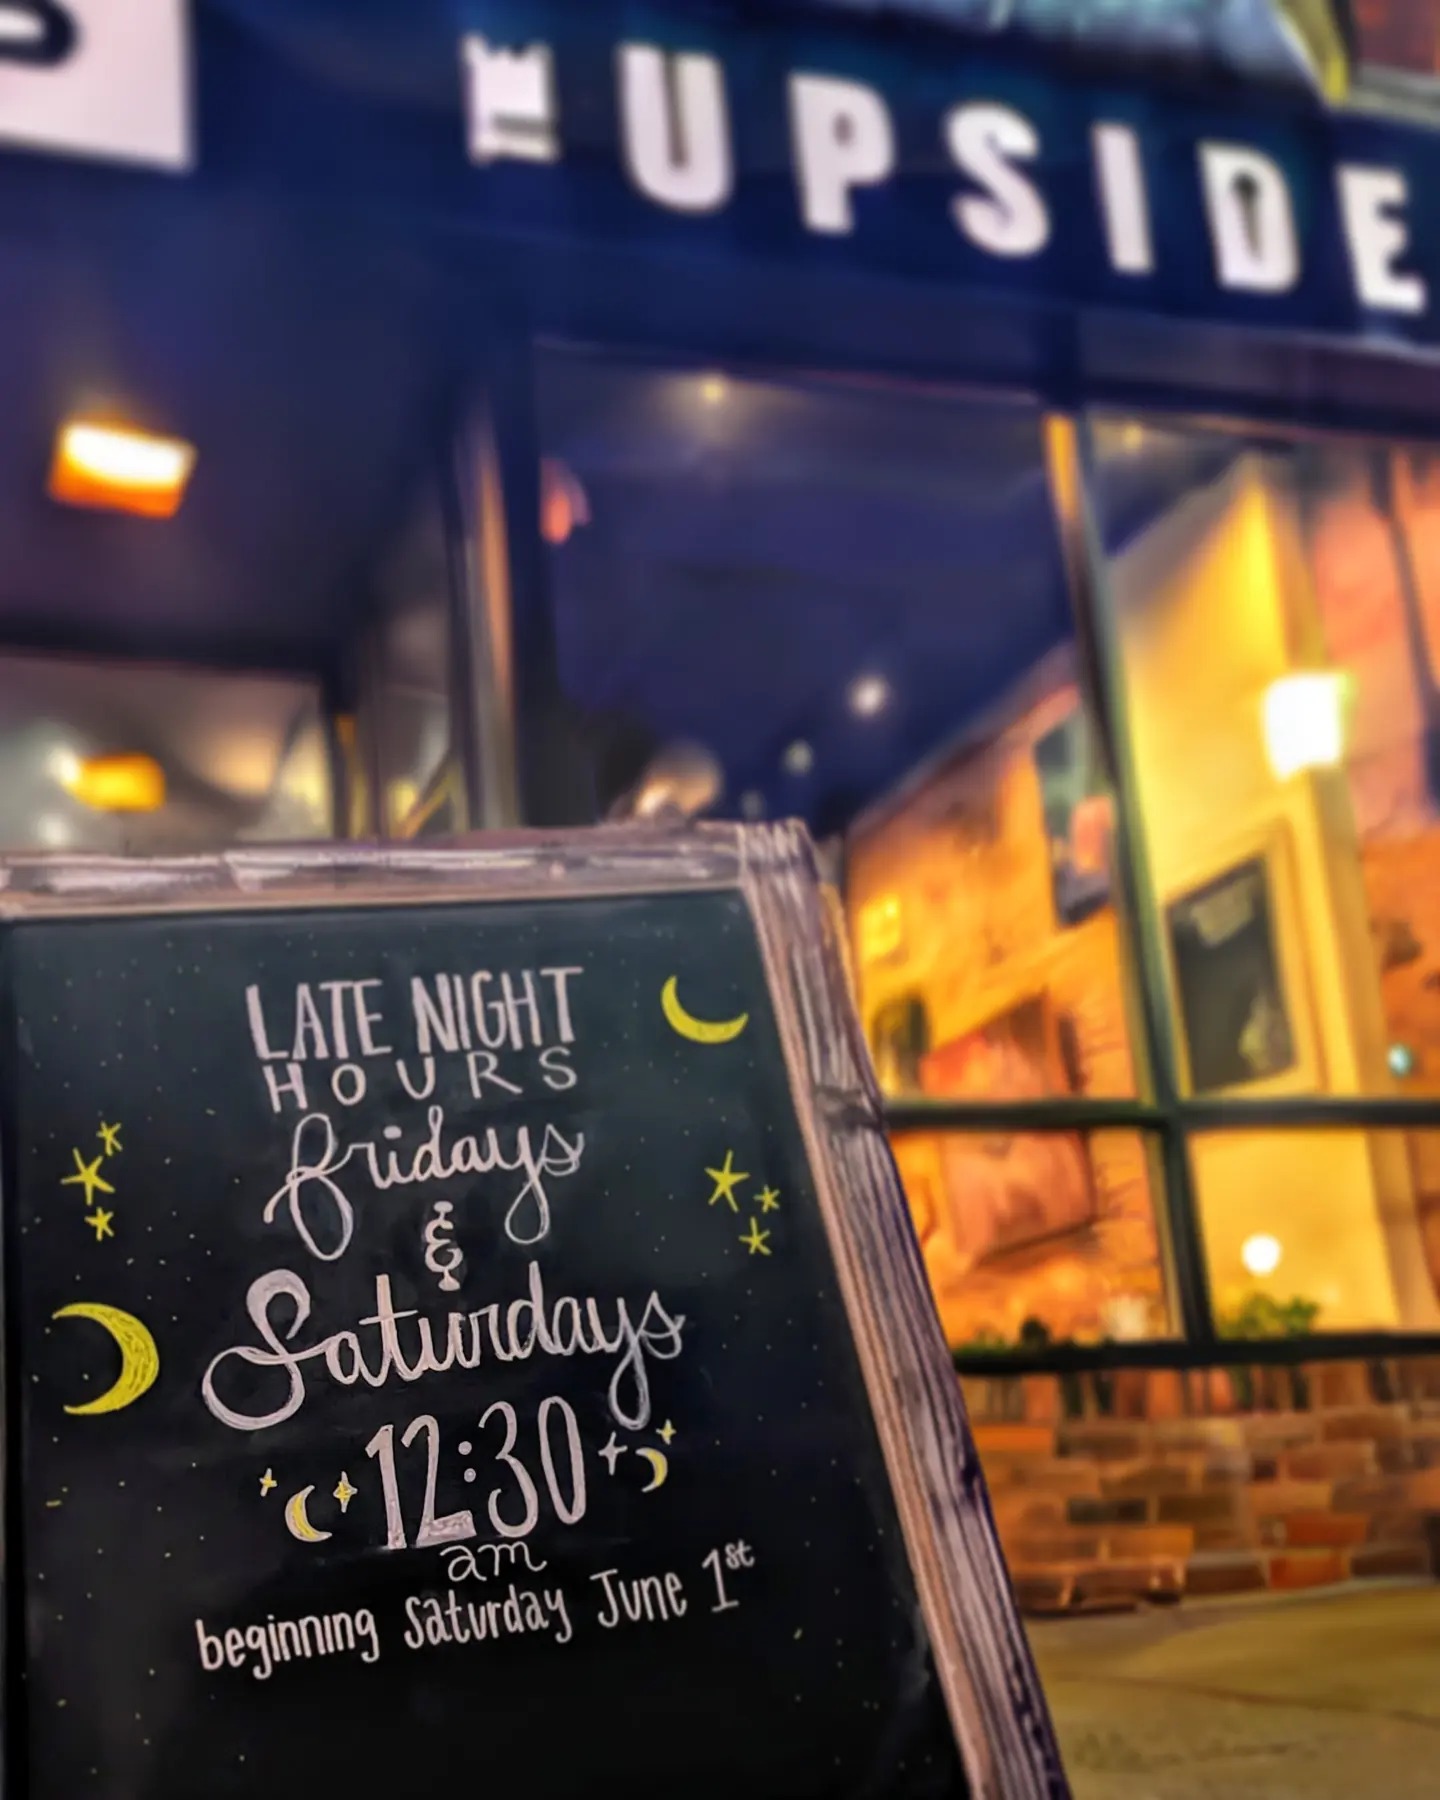 THE UPSIDE
LATE NIGHT
HOURS
fridays
&
Saturdays
12:30
am
beginning Saturday June 1st